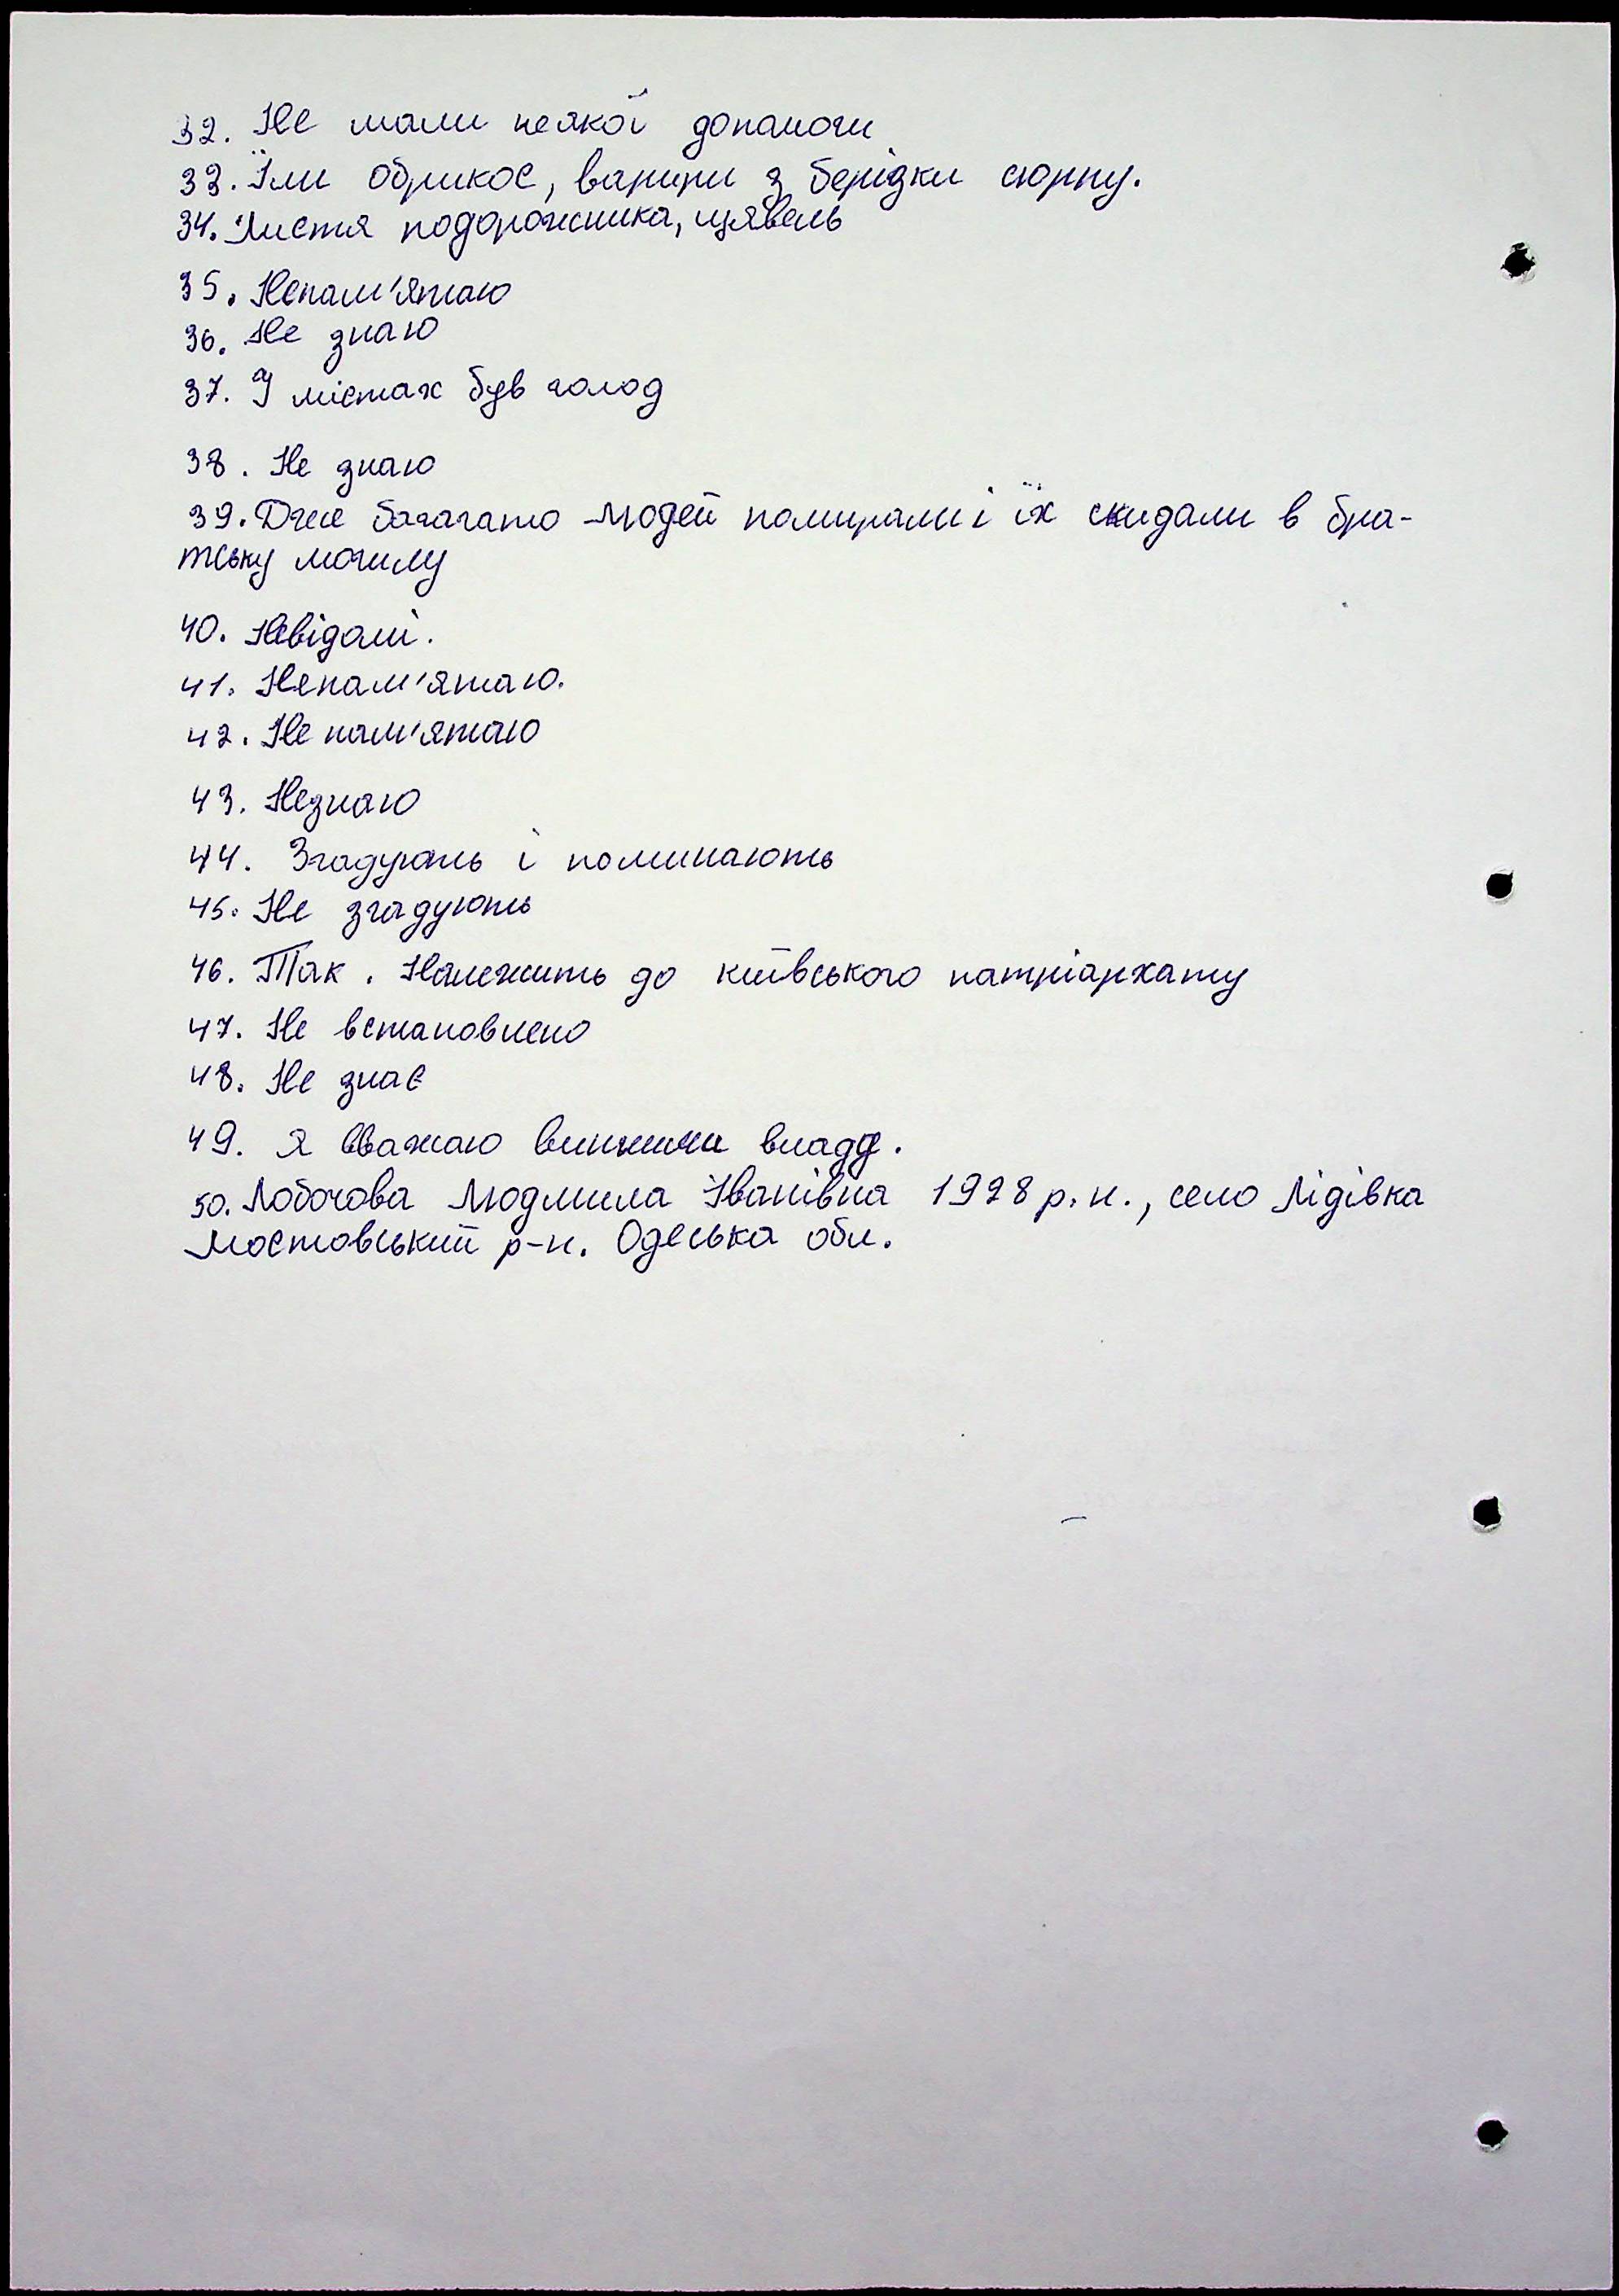 32. Не мали неякої допомоги
33. Їли обрикос, варири з берізки сюрпу.
34. Листя подорожника, щявель
35. Непам'ятаю
36. Не знаю
37. У містах був голод
38. Не знаю
39. Дуже багагато людей помирали і їх скидали в бра-
тську могилу
40. Невідомі.
41. Непам'ятаю.
42. Не пам'ятаю
43. Незнаю
44. Згадують і поминають
45. Не згадують
46. Так. Належить до київського патріархату
47. Не встановлено
48. Не знає
49. Я вважаю винними владу.
50. Лобочова Людмила Іванівна 1928 р. н., село Лідівка
Мостовський р-н. Одеська обл.